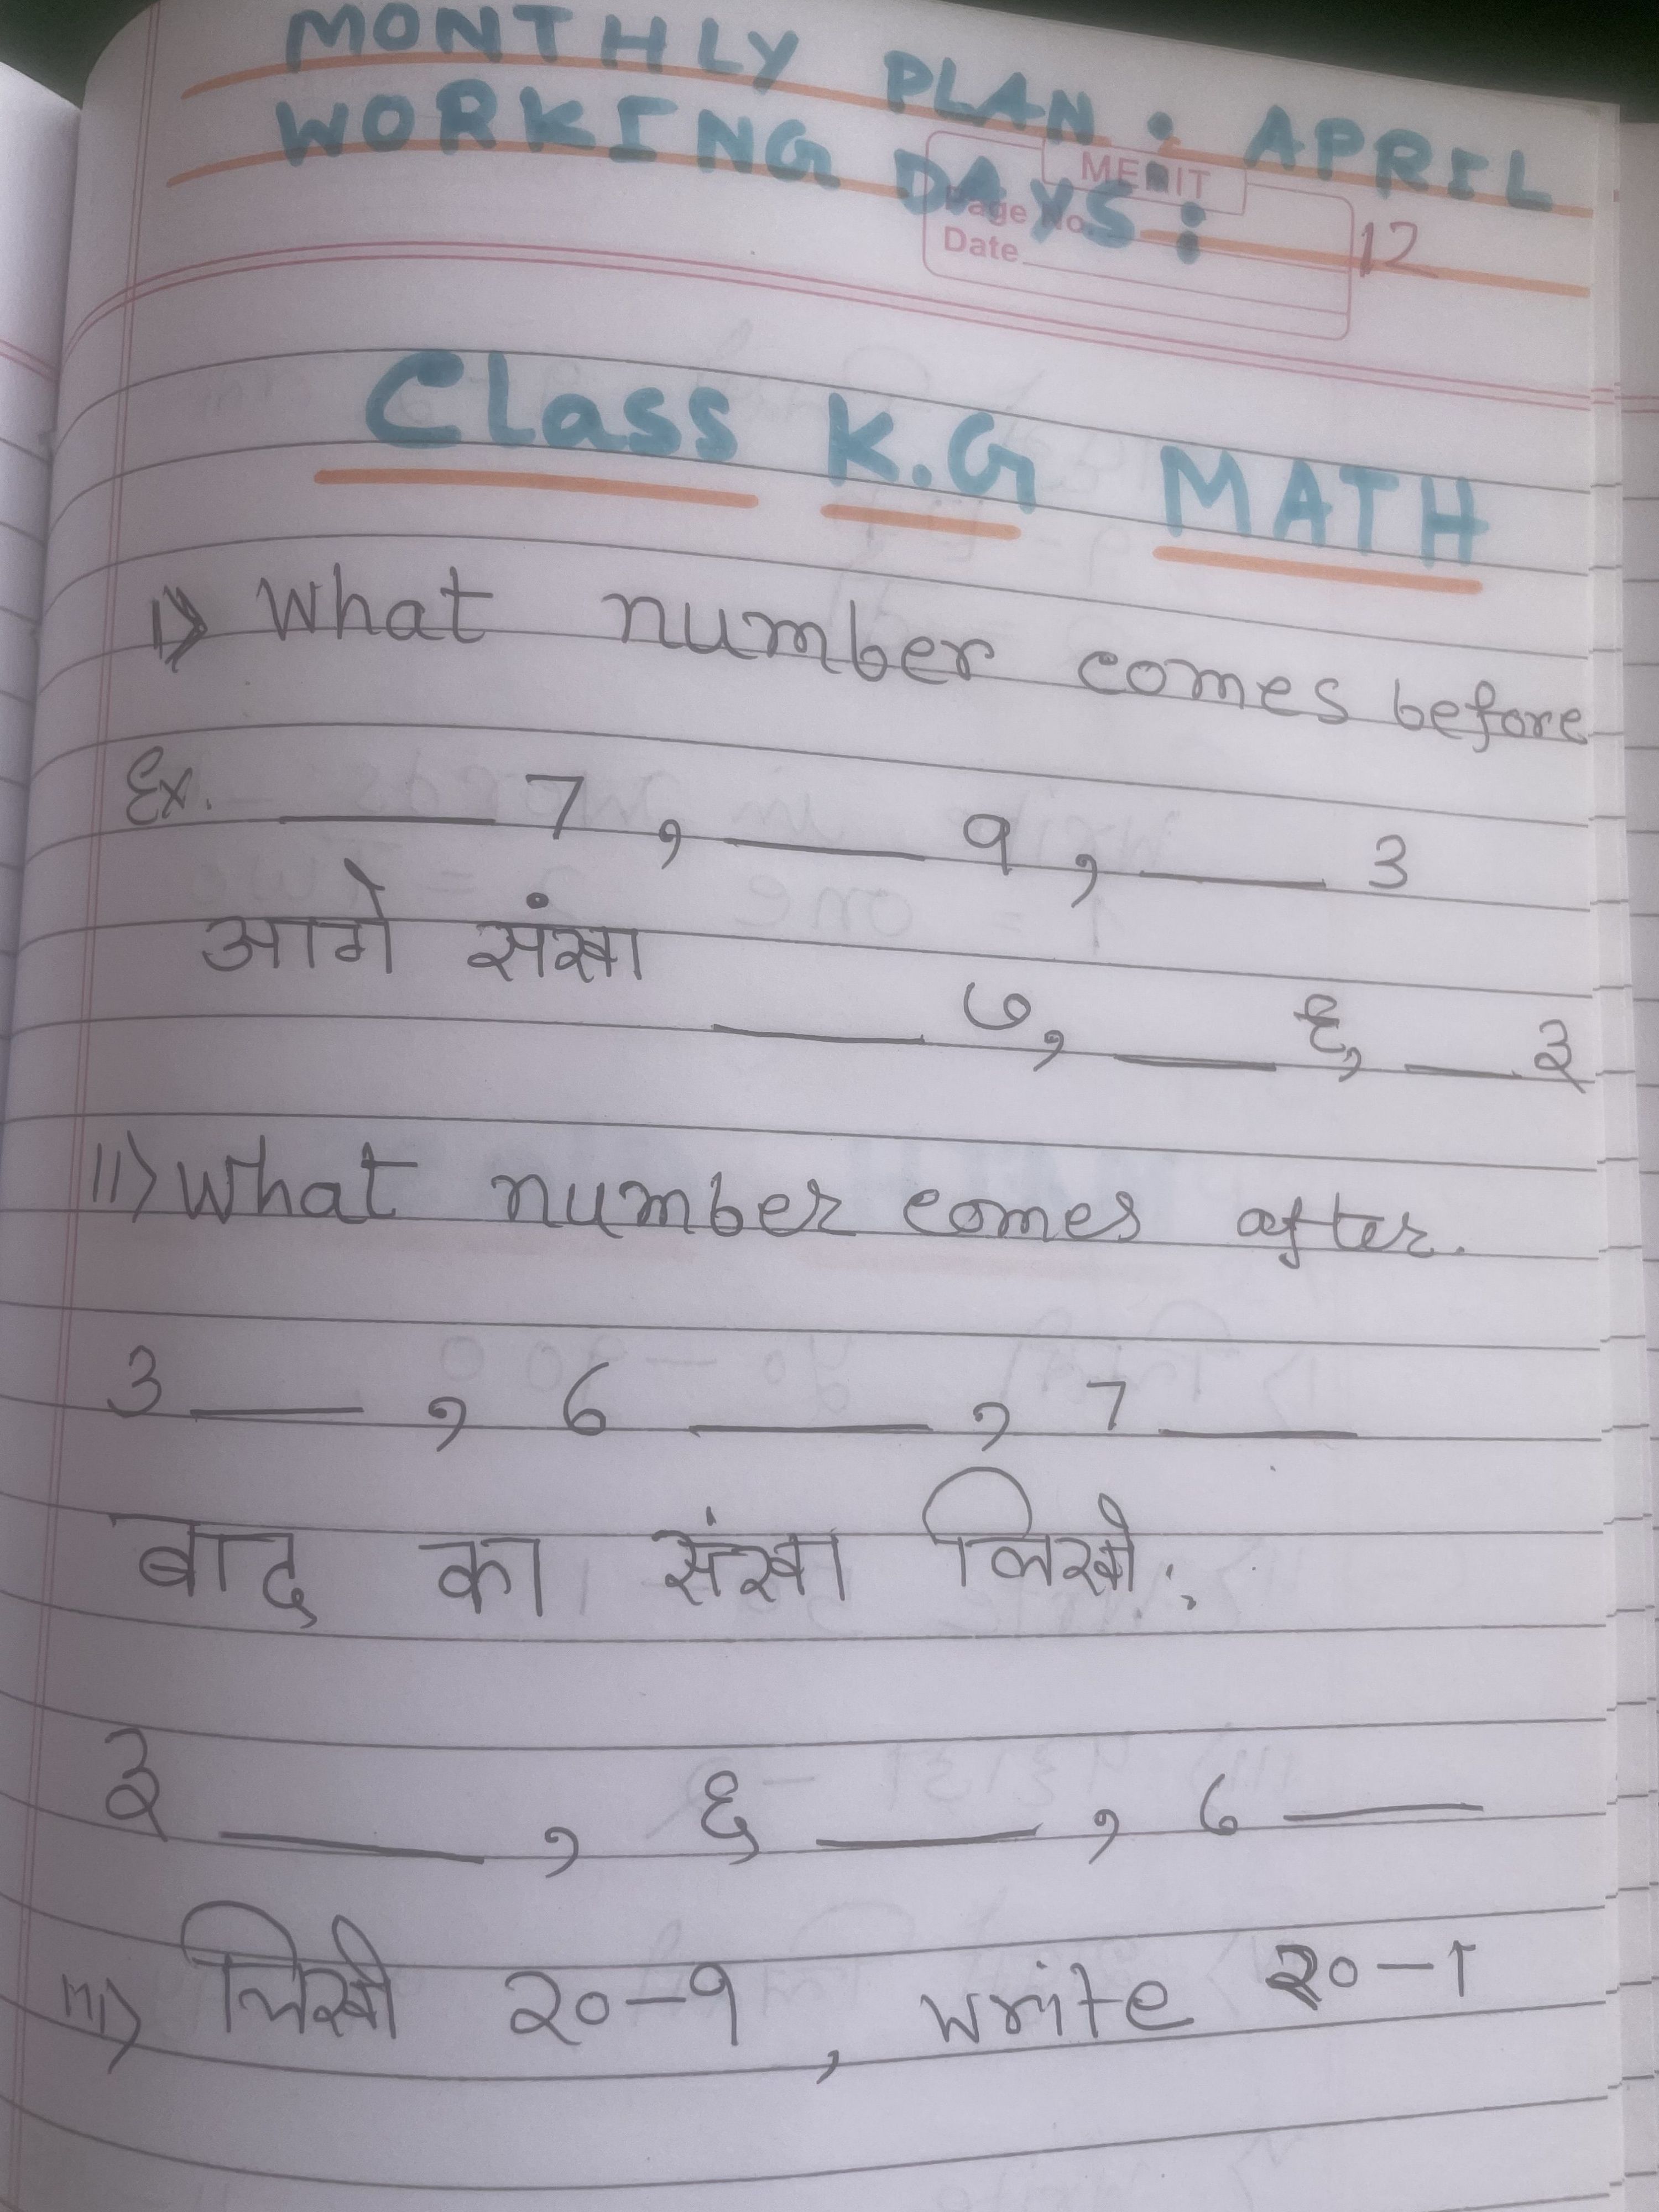 MONTHLY PLAN : APRIL
WORKING DAYS : 12
MERIT
Page No.
Date
Class K.G MATH
I) What number comes before
Ex. ____ 7 , ____ 9 , ____ 3
आगे संखा
____ ७, ____ ६, ____ ३
II) What number comes after.
3 ____ , 6 ____ , 7 ____
बाद का संखा लिखो:,
३ ____ , ६ ____ , ७ ____
III) लिखो २०-१ , write २०-1